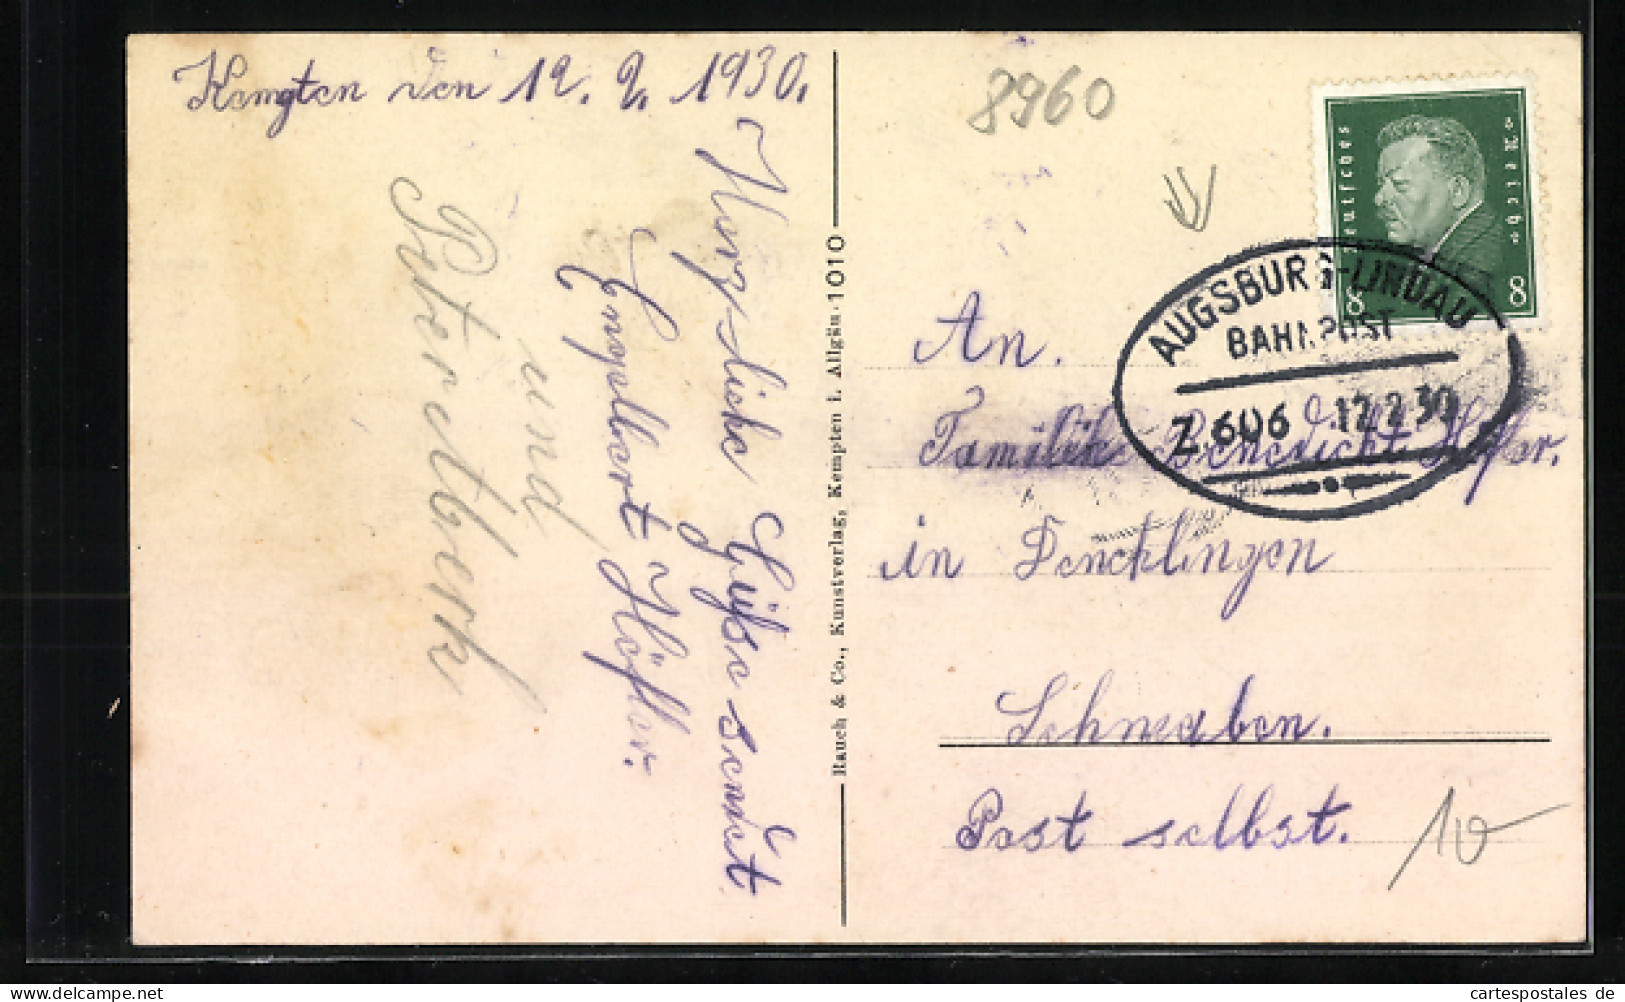 Kempten den 12. 2. 1930.
Herzliche Grüße sendet
Engelbert Höfler.
und
Rauch & Co., Kunstverlag, Kempten i. Allgäu. 1010
8960
Deutsches Reich
8 8
AUGSBURG-LINDAU
BAHNPOST
Z. 606 12 2 30
An.
Familie Benedickt Höfler.
in Dencklingen
Schwaben.
Post selbst.
10
cartespostales de